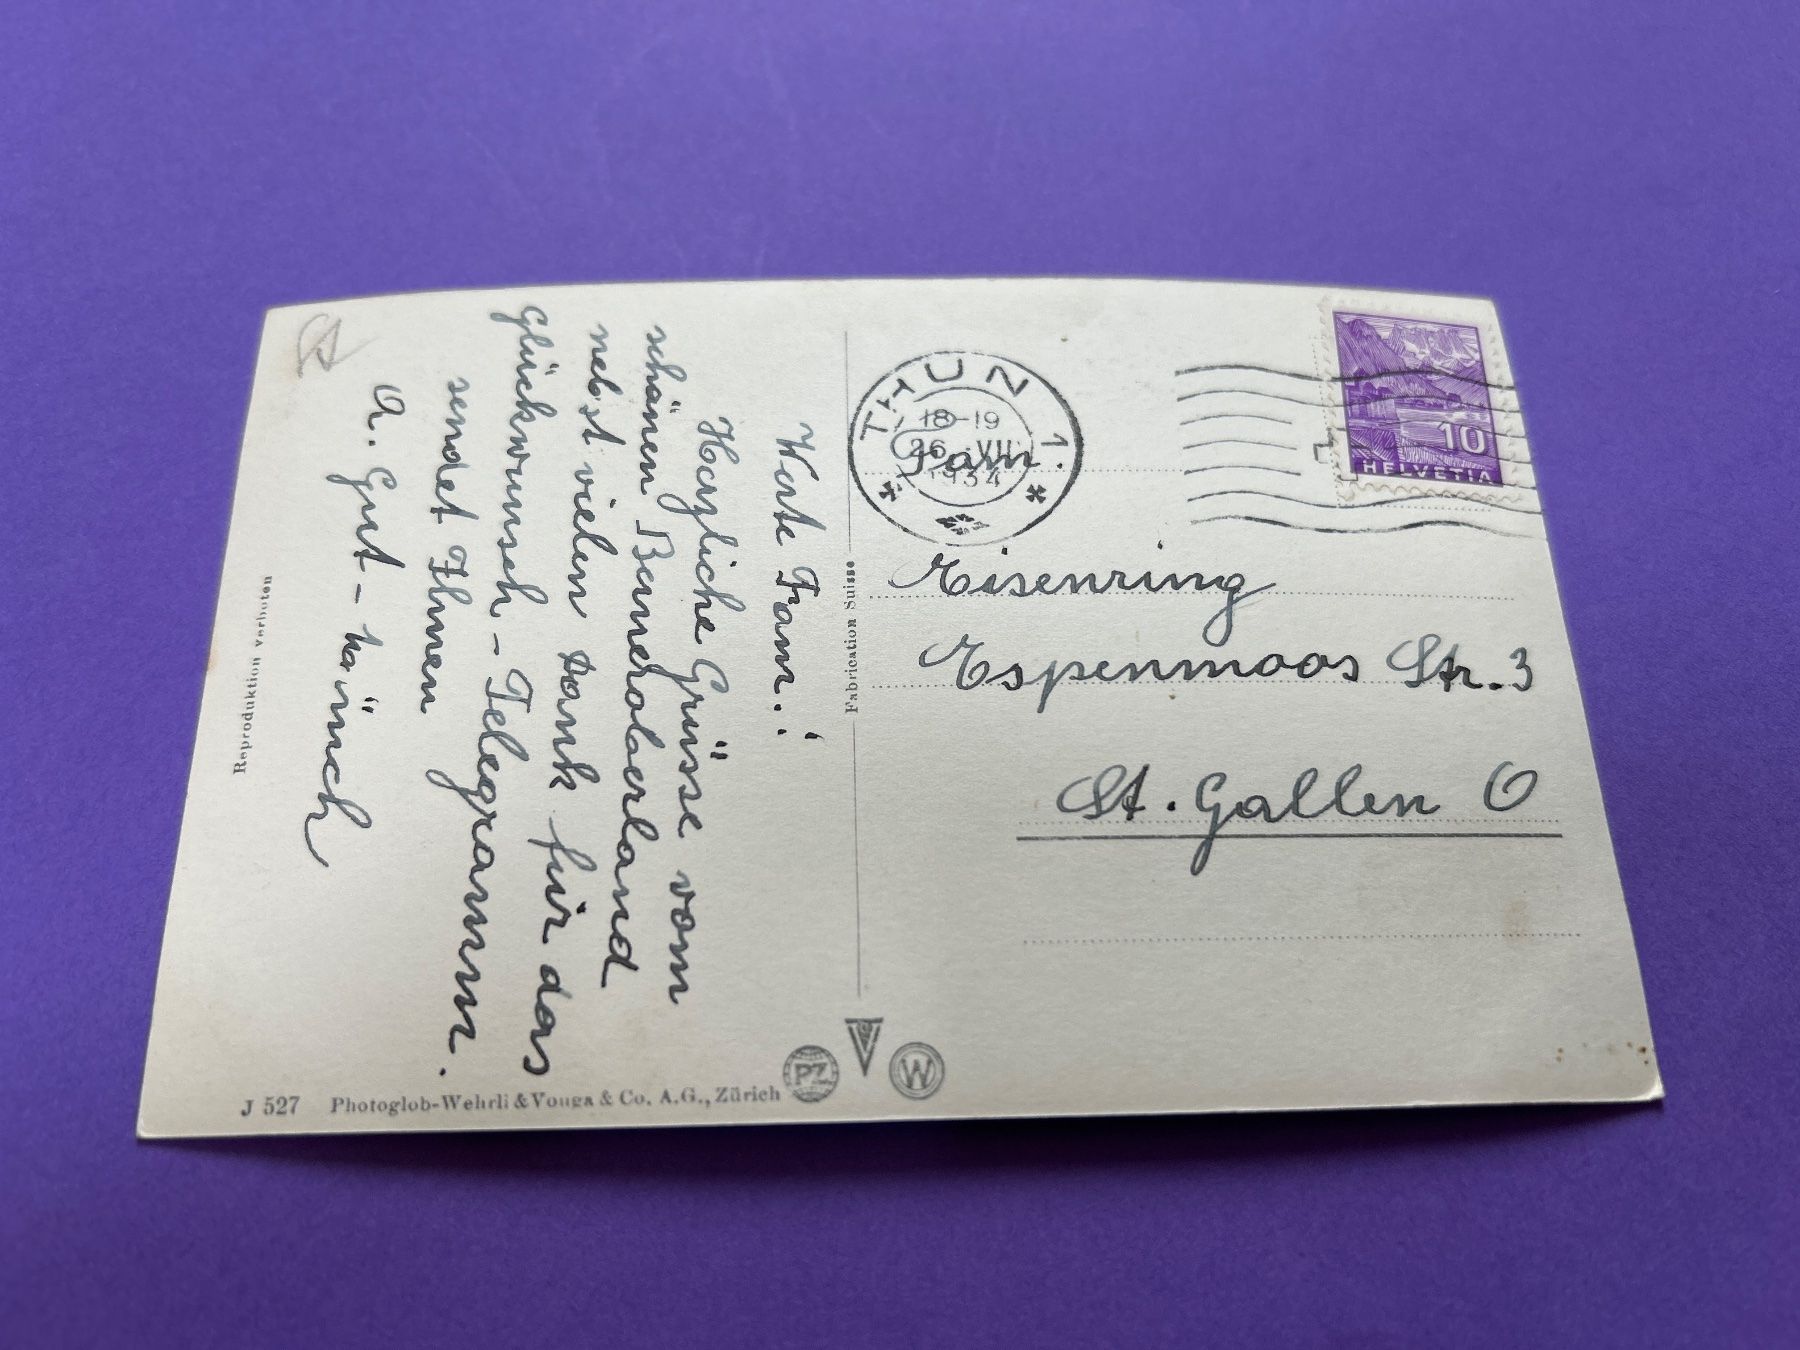 Werte Fam.!
Herzliche Grüsse vom
schönen Berneroberland
nebst vielen Dank für das
Glückwunsch-Telegramm.
sendet Ihnen
A. Gut-
Reproduktion verboten
J 527 Photoglob-Wehrli & Vouga & Co. A.G., Zürich
PZ
W
Fabrication Suisse
THUN 1
18-19
26. VII
1934
10
HELVETIA
Fam.
Eisenring
Espenmoos Str. 3
St. Gallen O